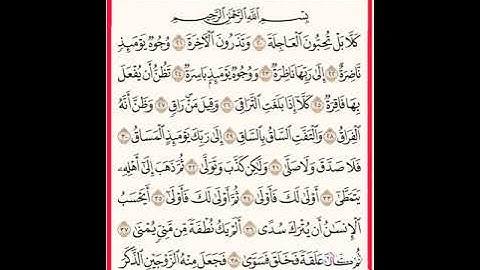 بِسْمِ ٱللَّهِ ٱلرَّحْمَٰنِ ٱلرَّحِيمِ
كَلَّا بَلْ تُحِبُّونَ ٱلْعَاجِلَةَ ٢٠ وَتَذَرُونَ ٱلْآخِرَةَ ٢١ وُجُوهٌ يَوْمَئِذٍ
نَّاضِرَةٌ ٢٢ إِلَىٰ رَبِّهَا نَاظِرَةٌ ٢٣ وَوُجُوهٌ يَوْمَئِذٍۭ بَاسِرَةٌ ٢٤ تَظُنُّ أَن يُفْعَلَ
بِهَا فَاقِرَةٌ ٢٥ كَلَّآ إِذَا بَلَغَتِ ٱلتَّرَاقِيَ ٢٦ وَقِيلَ مَنْ رَاقٍ ٢٧ وَظَنَّ أَنَّهُ
ٱلْفِرَاقُ ٢٨ وَٱلْتَفَّتِ ٱلسَّاقُ بِٱلسَّاقِ ٢٩ إِلَىٰ رَبِّكَ يَوْمَئِذٍ ٱلْمَسَاقُ ٣٠
فَلَا صَدَّقَ وَلَا صَلَّىٰ ٣١ وَلَٰكِن كَذَّبَ وَتَوَلَّىٰ ٣٢ ثُمَّ ذَهَبَ إِلَىٰٓ أَهْلِهِۦ
يَتَمَطَّىٰٓ ٣٣ أَوْلَىٰ لَكَ فَأَوْلَىٰ ٣٤ ثُمَّ أَوْلَىٰ لَكَ فَأَوْلَىٰٓ ٣٥ أَيَحْسَبُ
ٱلْإِنسَٰنُ أَن يُتْرَكَ سُدًى ٣٦ أَلَمْ يَكُ نُطْفَةً مِّن مَّنِىٍّ يُمْنَىٰ ٣٧
ثُمَّ كَانَ عَلَقَةً فَخَلَقَ فَسَوَّىٰ ٣٨ فَجَعَلَ مِنْهُ ٱلزَّوْجَيْنِ ٱلذَّكَرَ